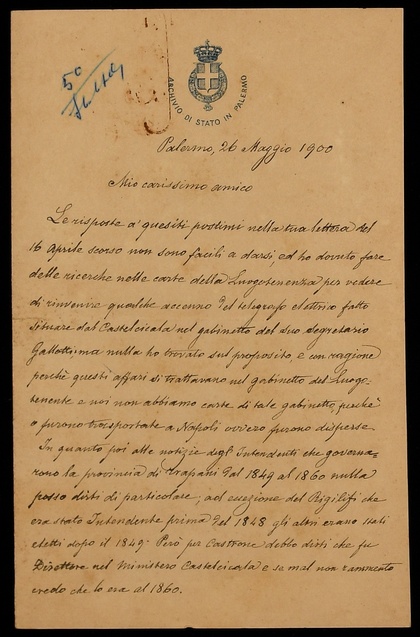 50
ARCHIVIO DI STATO IN PALERMO
Palermo, 26 Maggio 1900
Mio carissimo amico
Le risposte a' quesiti postimi nella tua lettera del
16 aprile scorso non sono facili a darsi, ed ho dovuto fare
delle ricerche nelle carte della Luogotenenza per vedere
di rinvenire qualche accenno del telegrafo elettrico fatto
situare dal Castelcicala nel gabinetto del suo segretario
Gallotti, ma nulla ho trovato sul proposito, e con ragione
perchè questi affari si trattavano nel gabinetto del Luogo-
tenente e noi non abbiamo carte di tale gabinetto, perchè
o furono trasportate a Napoli ovvero furono disperse.
In quanto poi alle notizie degl'Intendenti che governa-
rono la provincia di Trapani dal 1849 al 1860 nulla
posso dirti di particolare; ad eccezione del Rigilifi che
era stato Intendente prima del 1848 gli altri erano stati
eletti dopo il 1849. Però per Castrone debbo dirti che fu
Direttore nel Ministero Castelcicala e se mal non rammento
credo che lo era al 1860.